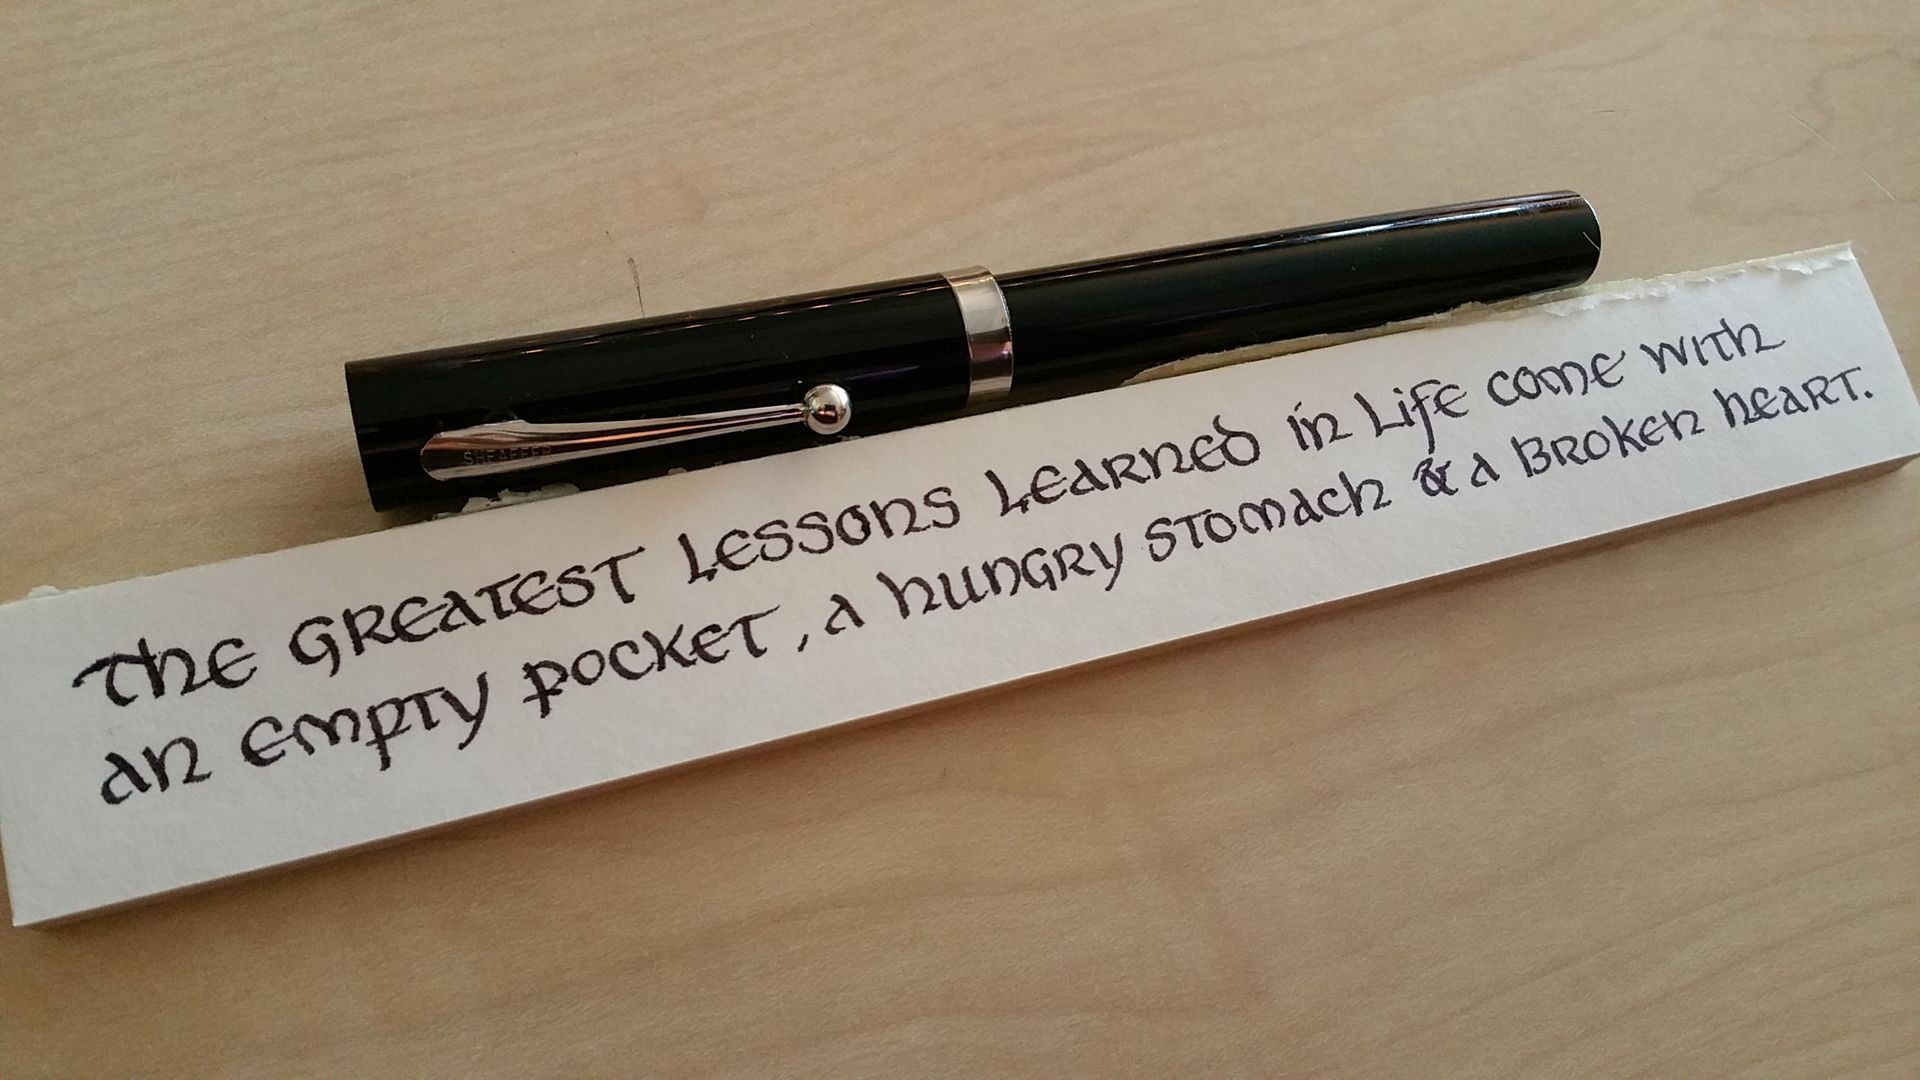 SHEAFFER
The GREATEST LESSONS LEARNED in Life come with
an empty pocket, a hungry stomach & a Broken heart.